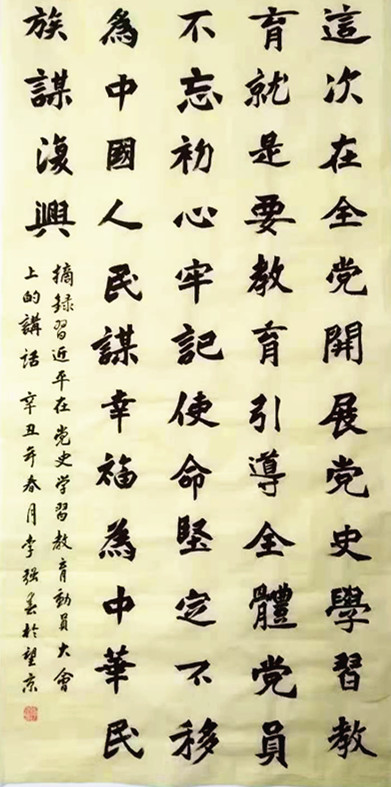 這次在全党開展党史學習教
育就是要教育引導全體党員
不忘初心牢記使命堅定不移
為中國人民謀幸福為中華民
族謀復興
摘録習近平在党史学習教育動員大會
上的講話 辛丑年春月李强書於望京